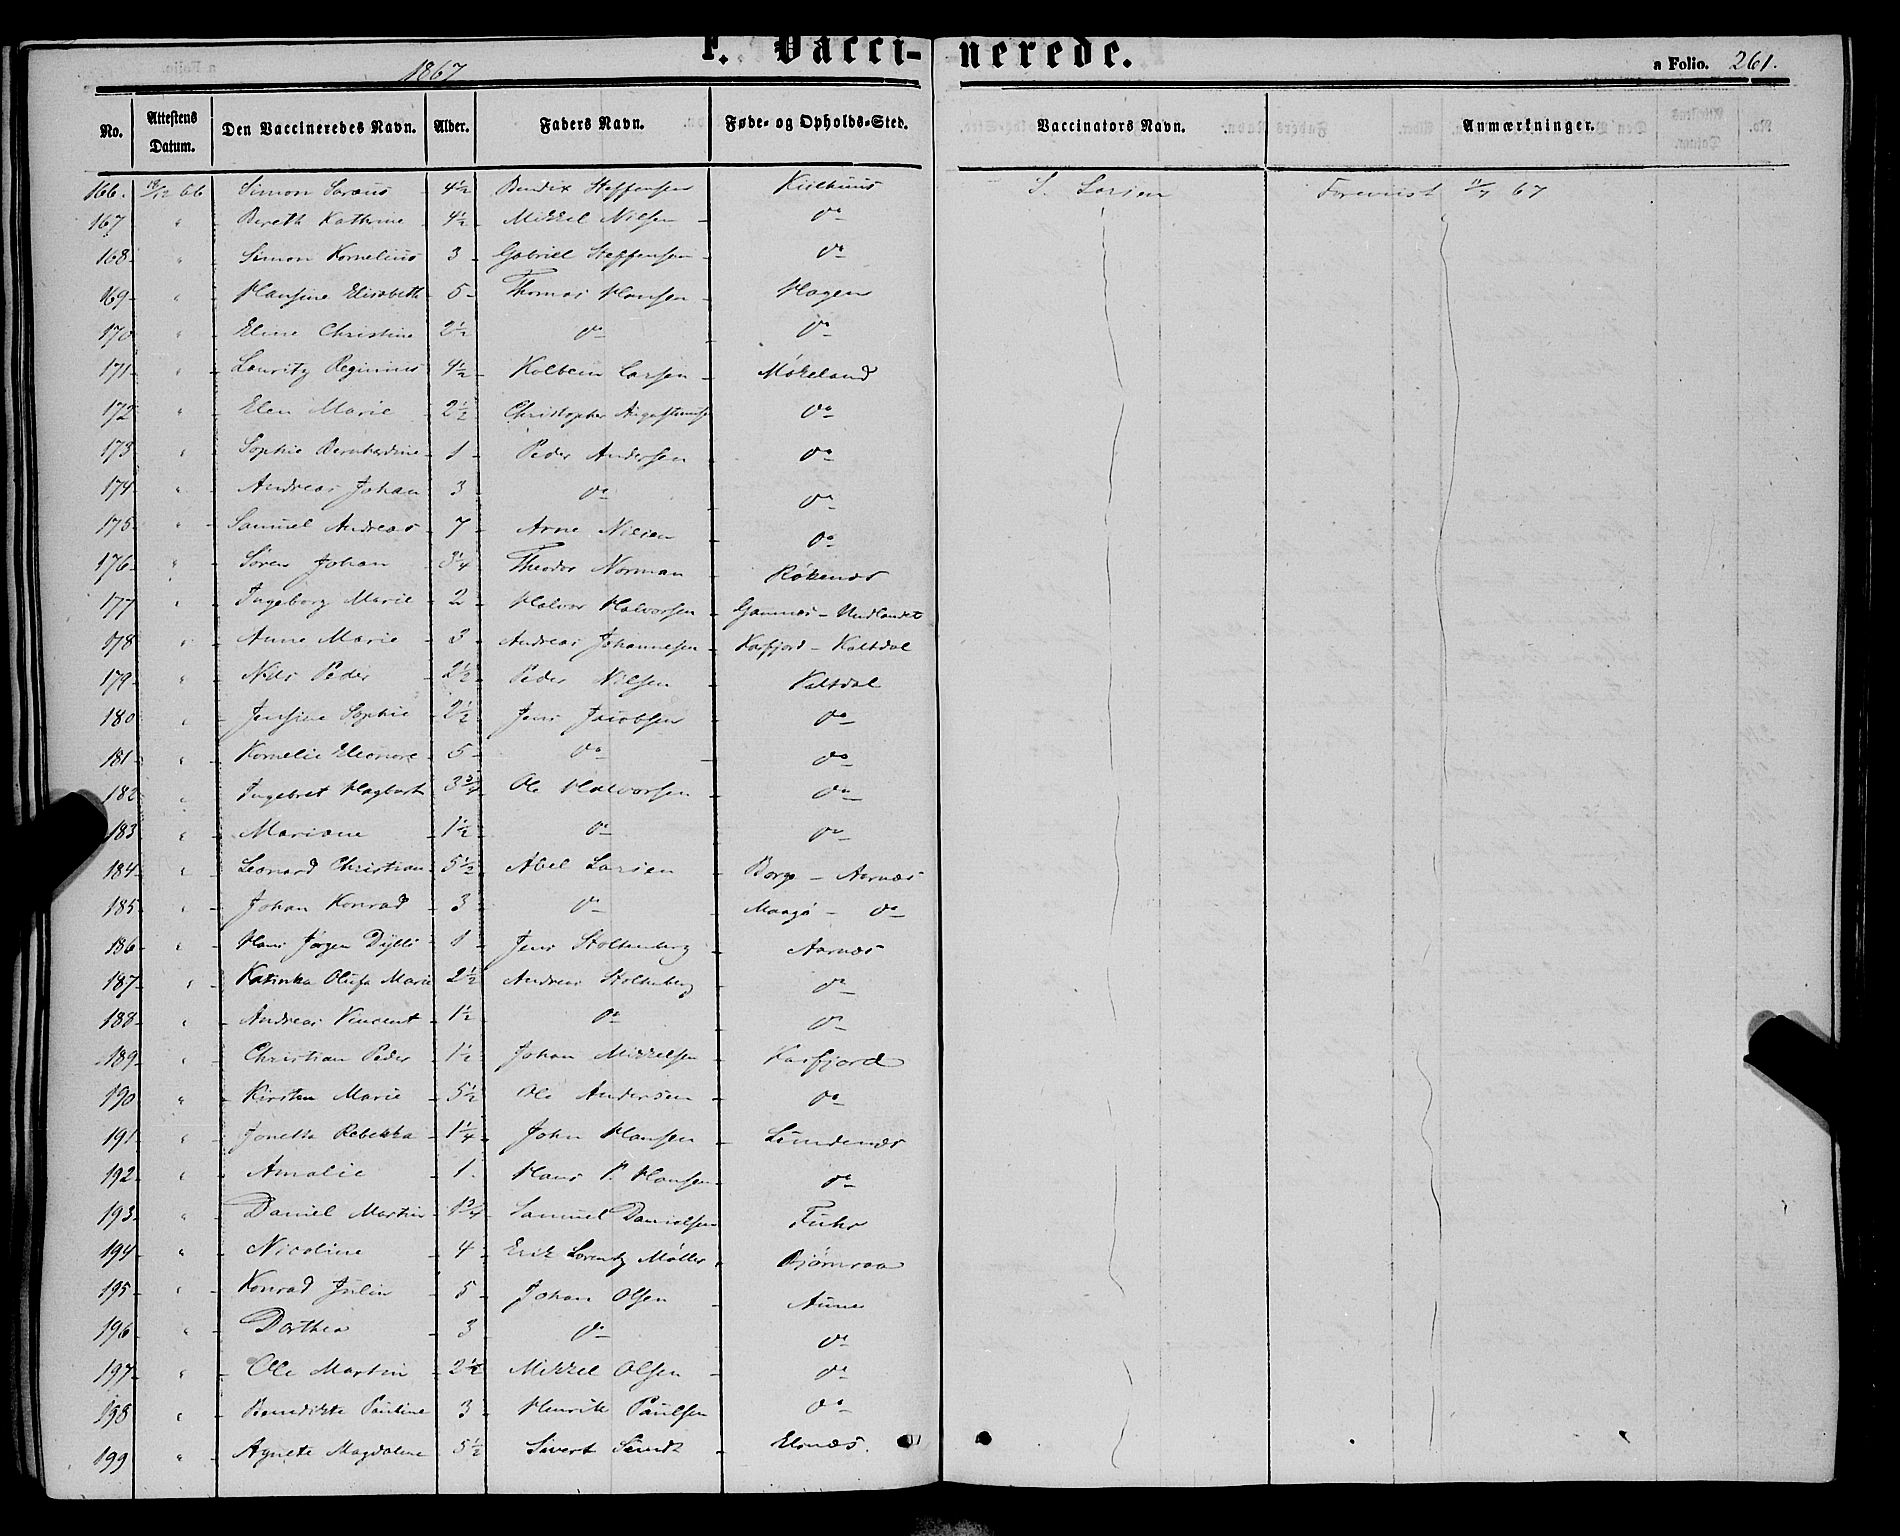 F. Vacci-nerede.
1867
a Folio. 261.
No. Attestens Datum. Den Vaccineredes Navn. Alder. Faders Navn. Føde- og Opholds-Sted. Vaccinators Navn. Anmærkninger.
166. 12 66 Simon 4½ Bendix Steffensen S. Larsen Forevist 67
167 " Bereth Kathrine 4½ Mikkel Nilsen do
168 " Simon Kornelius 3 Gabriel Steffensen do
169 " Hansine Elisabeth 5 Thomas Hansen Hagen
170 " Eline Christine 2½ do do
171 " Lauritz Reginius 4½ Kolbein Larsen Møkeland
172 " Elen Marie 2½ Christopher do
173 " Sophie Bernhardine 1 Peder Andersen do
174 " Andreas Johan 3 do do
175 " Samuel Andreas 7 Arne Nilsen do
176 " Søren Johan 3¼ Theodor Norman Røkenæs
177 " Ingeborg Marie 2 Halvor Halvorsen Gamnæs -
178 " Anne Marie 3 Andreas Johannesen Kasfjord - Kaltdal
179 " Nils Peder 2½ Peder Nilsen Kaltdal
180 " Jensine Sophie 2½ Jens Jacobsen do
181 " Kornelie Eleonore 5 do do
182 " Ingebret Hagbart 3¾ Ole Halvorsen do
183 " Mariane 1½ do do
184 " Leonard Christian 5½ Abel Larsen Borge - Aarnæs
185 " Johan Konrad 3 do - do
186 " Hans Jørgen 1 Jens Stoltenberg Aarnæs
187 " Katinka Olufa Marie 2½ Andreas Stoltenberg do
188 " Andreas Vincent 1½ do do
189 " Christian Peder 1½ Johan Mikkelsen Kasfjord
190 " Kirsten Marie 5½ Ole Andersen do
191 " Jonetta Rebekka 1¼ John Hansen Lundenæs
192 " Amalie 1 Hans P. Hansen do
193 " Daniel Martin 1¾ Samuel Danielsen
194 " Nicoline 4 Erik Lorentz Møller Bjørnraa
195 " Konrad Julin 5 Johan Olsen Aune
196 " Dorthea 3 do do
197 " Ole Martin 2½ Mikkel Olsen do
198 " Benedikte Pauline 3 Henrik Paulsen do
199 " Agnete Magdalene 5½ Sivert Elsnæs.